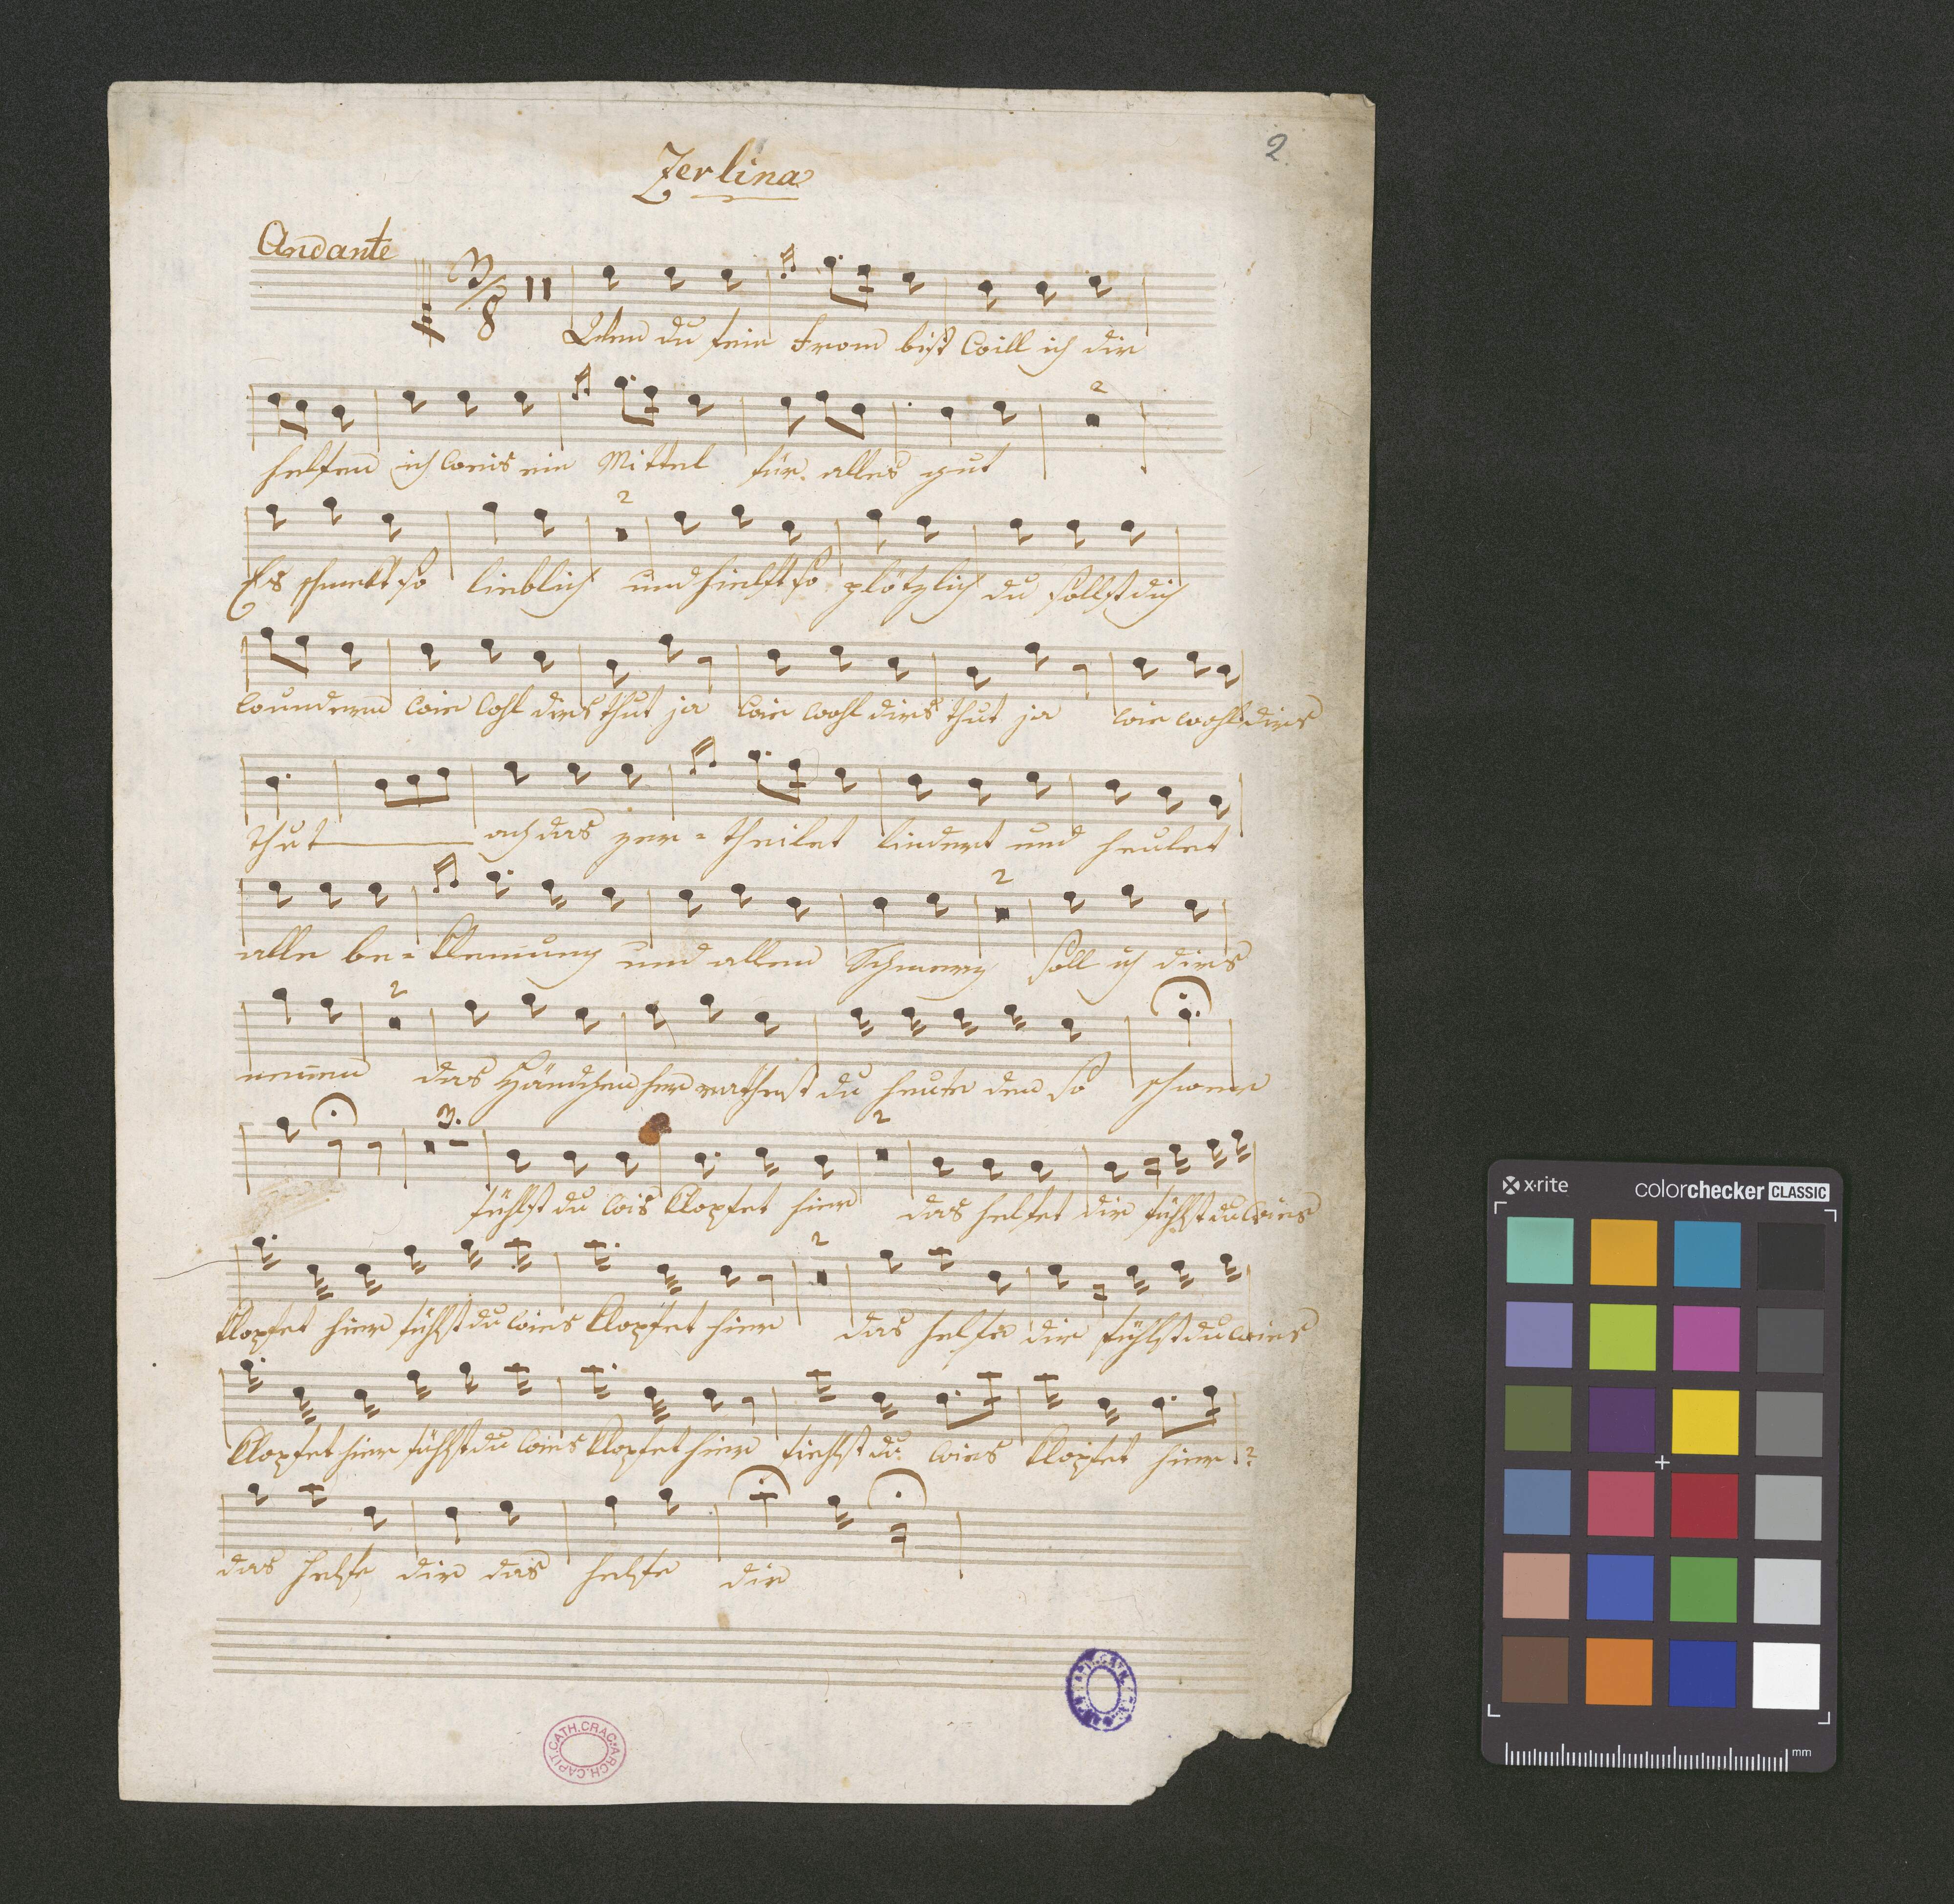 2.
Zerlina
Andante
3/8
Wen du fein from bist will ich dir
2
helfen ich weis ein Mittel für alles gut
2
Es schmekt so lieblich und hielft so plötzlich du sollst dich
wundern wie wohl dirs thut ja wie wohl dirs thut ja wie wohl dirs
thut ach das zer = theilet lindert und heulet
2
alle be = klemung und allen Schmerz soll ich dirs
2
nennen das Händchen her rathest du heute den so schwer
3. 2
fühlst du wis klopfet hier das helfet dir fühlst du wies
2
klopfet hier fühlst du wies klopfet hier das helfe dir fühlst du wies
klopfet hier fühlst du wies klopfet hier fiehlst du wies klopfet hier ?
das helfe dir das helfe dir
CAPIT.CATH.CRAC.ARCH.
x·rite
colorchecker CLASSIC
mm